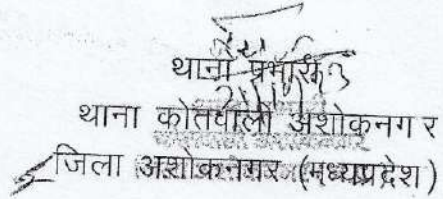 थाना प्रभारी
थाना कोतवाली अशोकनगर
जिला अशोकनगर (मध्यप्रदेश)